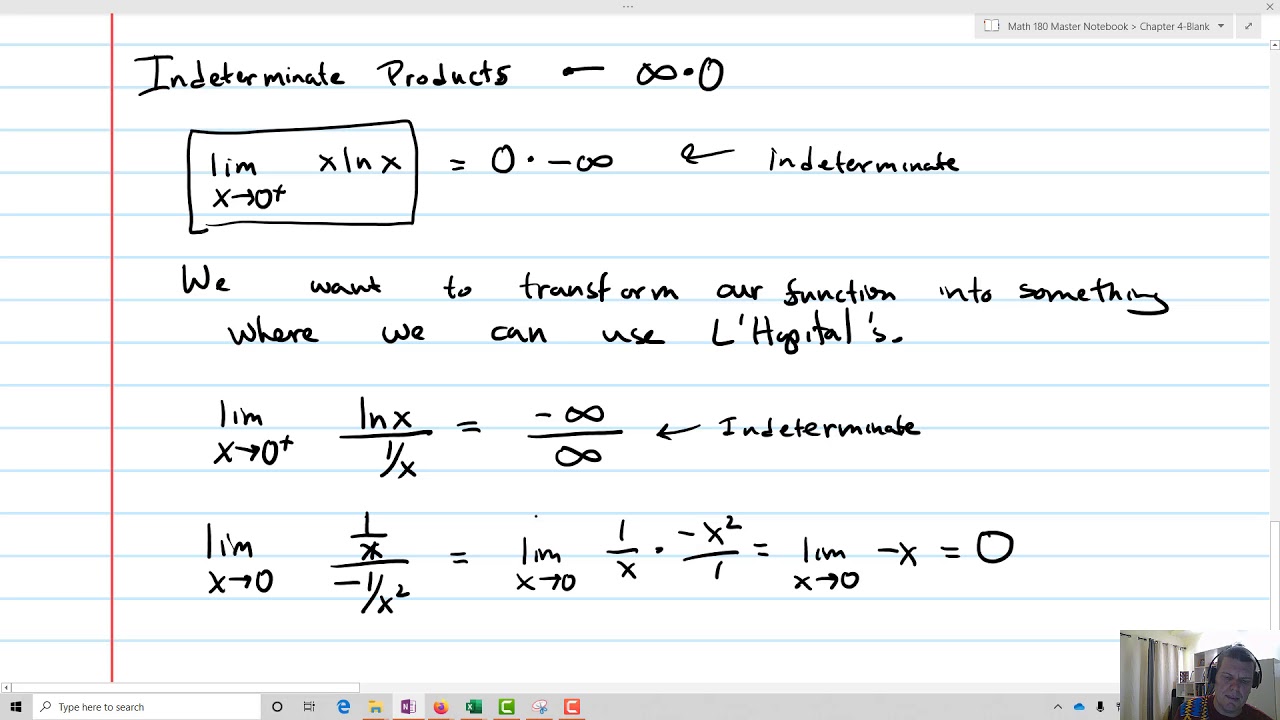 Math 180 Master Notebook > Chapter 4-Blank
Indeterminate Products ← ∞·0
lim x→0⁺ x ln x = 0 · -∞ ← indeterminate
We want to transform our function into something
where we can use L'Hopital's.
lim x→0⁺ ln x / (1/x) = -∞/∞ ← Indeterminate
lim x→0 (1/x) / (-1/x²) = lim x→0 1/x · -x²/1 = lim x→0 -x = 0
Type here to search